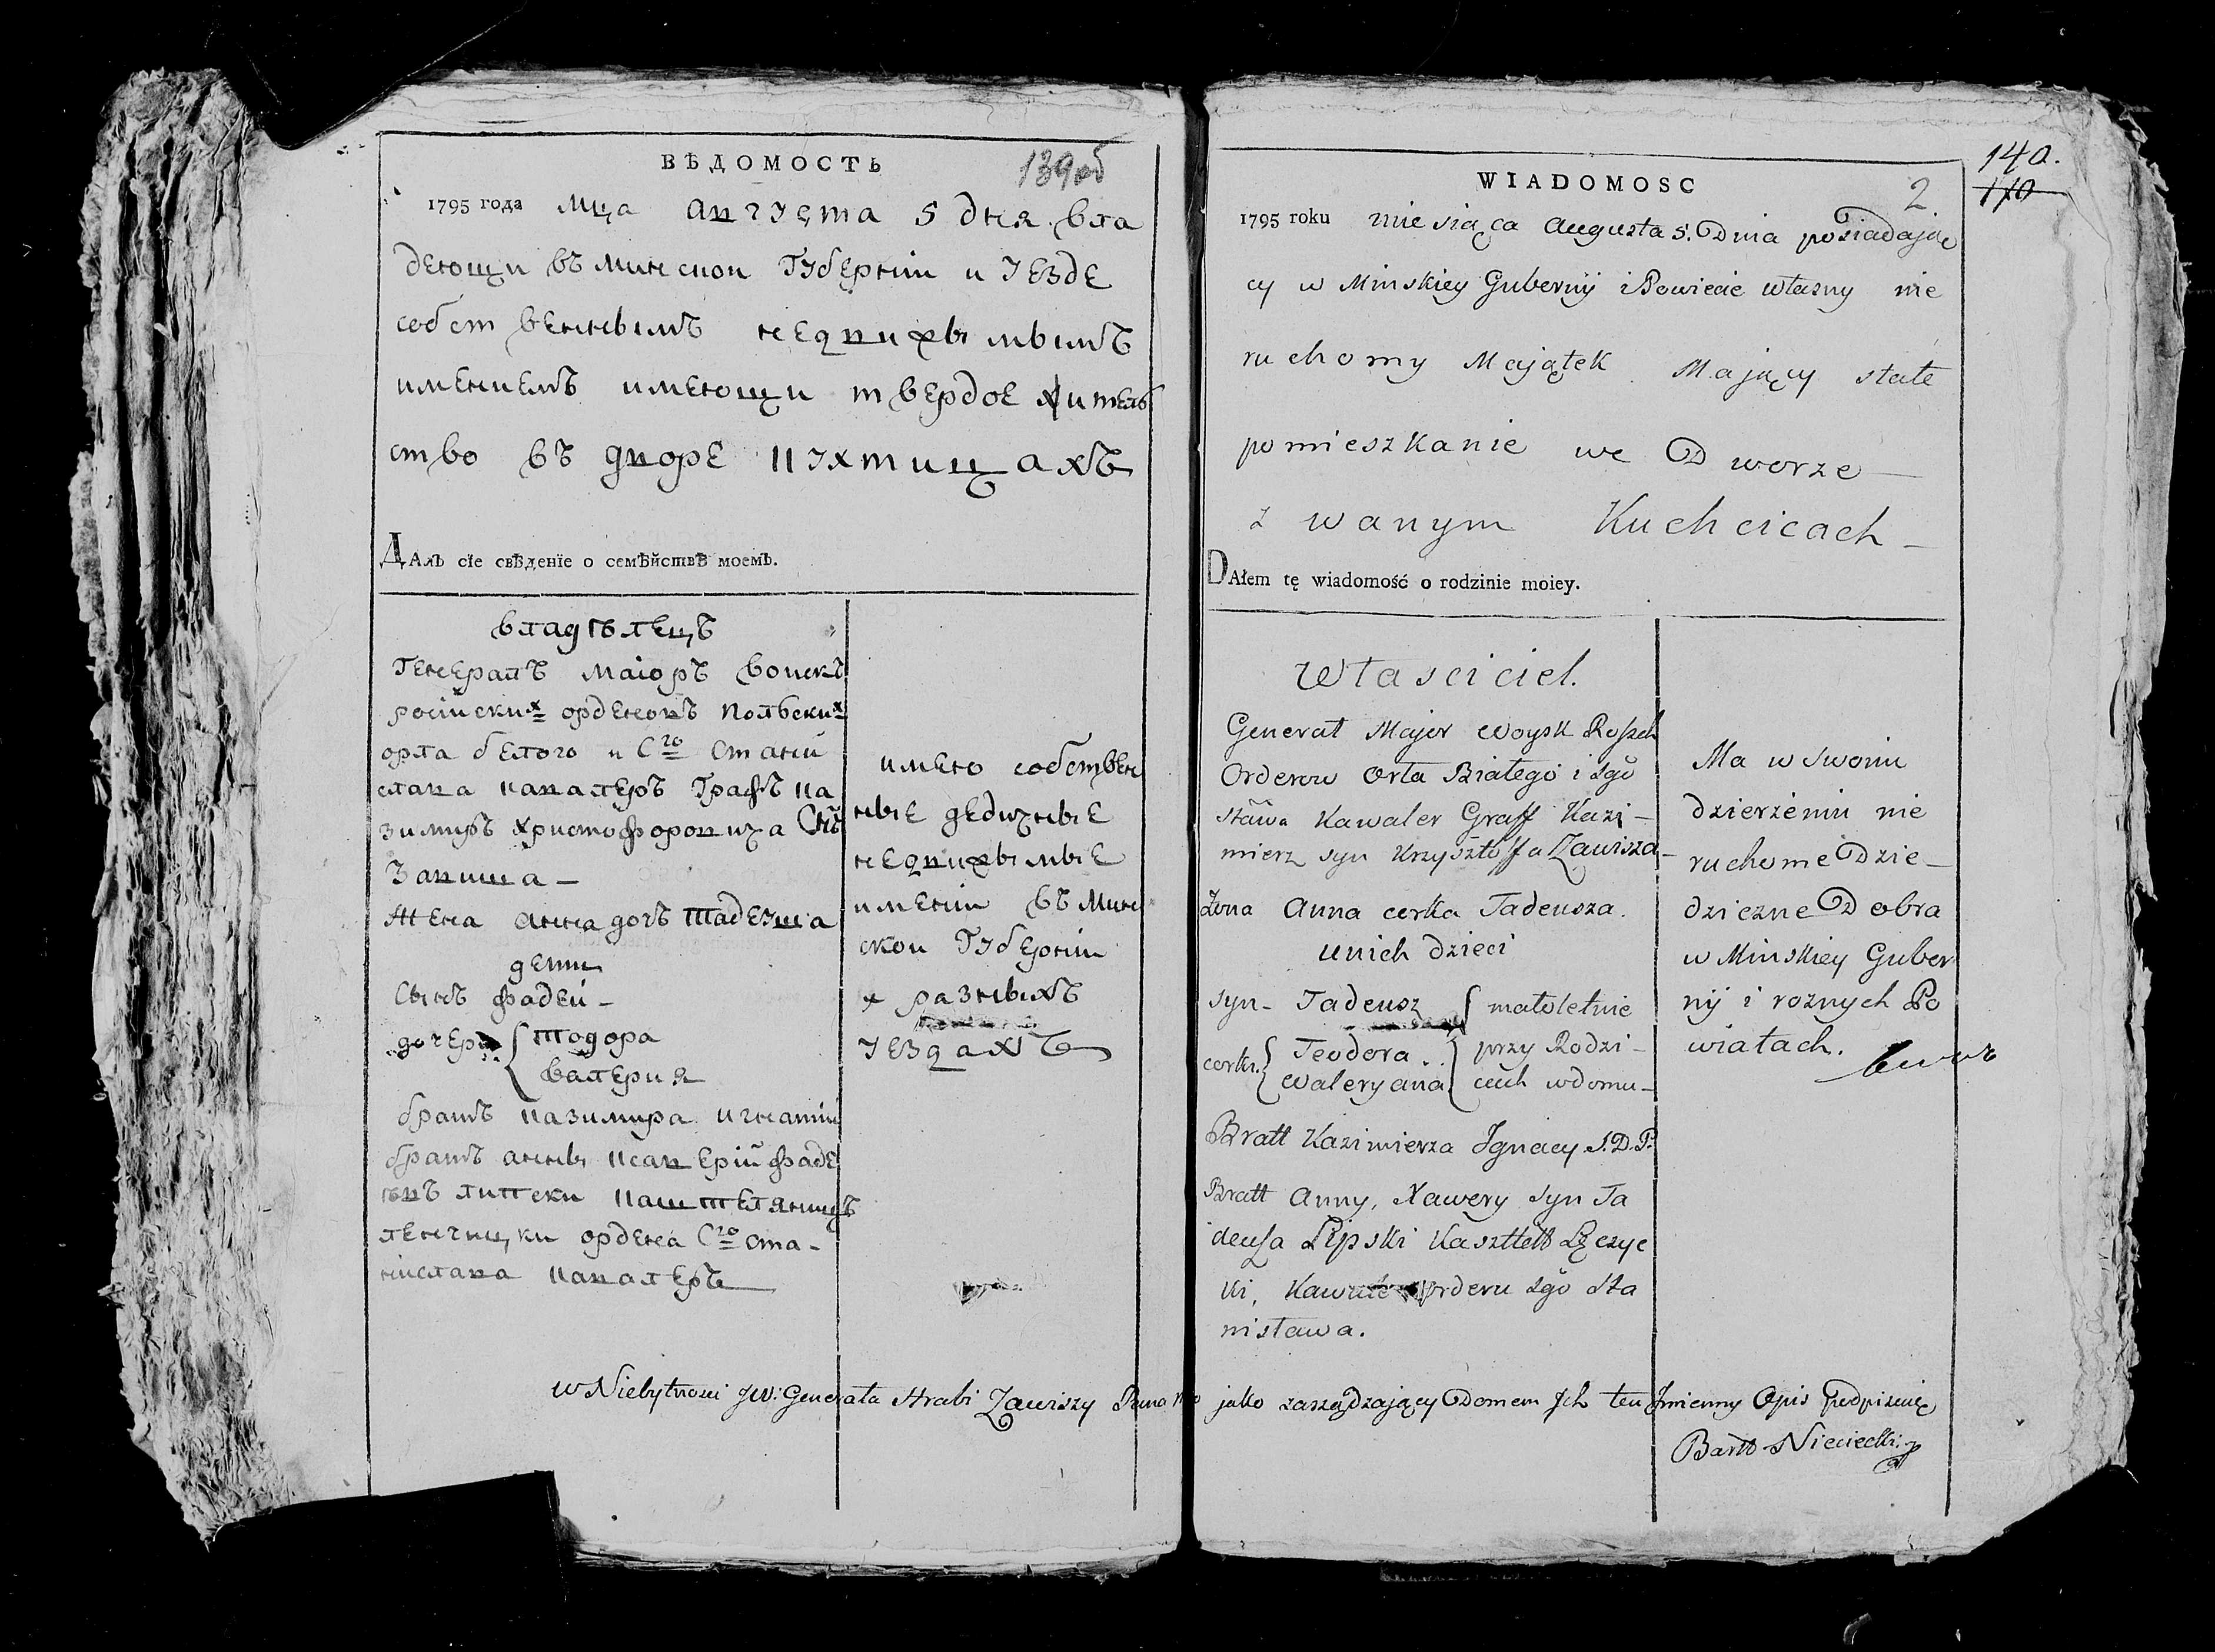 ВѢДОМОСТЬ
139об
1795 года мца августа 5 дня вла
деющи въ минскои губернiи и уезде
собст венннымъ недвижымымъ
имениемъ имеющи твердое жителѣ
ство въ дворе кухтицахъ
ДАлъ сїе свѣденїе о семѣйствѣ моемъ.
владѣлецъ
Генералъ маiоръ воискъ
росiиских орденовъ польских
орла белого и Сго Станi
слава кавалеръ Графъ ка
зимиръ христофоровича Снъ
Завиша —
Жена анна дочъ тадеуша
дети
Сынъ фадеи —
дочери { тодора
валерия
братъ казимира игнатiи
братъ анны ксаверiи фаде
евъ липски каштеляницъ
ленчицки ордена Сго ста-
нислава кавалеръ
имею собствен
ные дедичные
недвижымые
именiи въ мин
скои губернiи
и разныхъ
уездахъ
140.
110
WIADOMOSC
2
1795 roku miesiąca Augusta 5. Dnia posiadając
cy w Minskiey Gubernij i Powiecie własny nie
ruchomy Majątek Mający stałe
pomieszkanie we Dworze —
zwanym Kuchcicach —
DAłem tę wiadomość o rodzinie moiey.
Własciciel.
Generał Major Woysk Rossch
Orderow Orła Białego i Sgo
Stawa Kawaler Graff Kazi —
mierz syn Krzysztoffa Zawisza —
Żona Anna corka Tadeusza.
unich dzieci
syn — Tadeusz { małoletnie
corki { Teodora . { przy Rodzi —
Waleryana cach w domu —
Bratt Kazimierza Ignacy S.D.P.
Bratt Anny, Xawery syn Ta
deusa Lipski Kasztell Łęczyc
ki, Kawaler Orderu Sgo Sta
nisława.
Ma w swoim
dzierzeniu nie
ruchome Dzie —
dziczne Dobra
w Minskiey Guber
nij i roznych Po
wiatach.
w Niebytnosci JW: Generała Hrabi Zawiszy Pana mo jako zarządzający Domem Jch ten Jmienny Opis podpisuię
Bartt Nieciecki